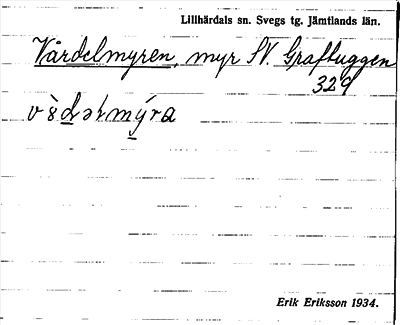 Lillhärdals sn. Svegs tg. Jämtlands län.
Vårdelmyren, myr SV. Grafbuggen
329
v8̀dəɫmýra
Erik Eriksson 1934.